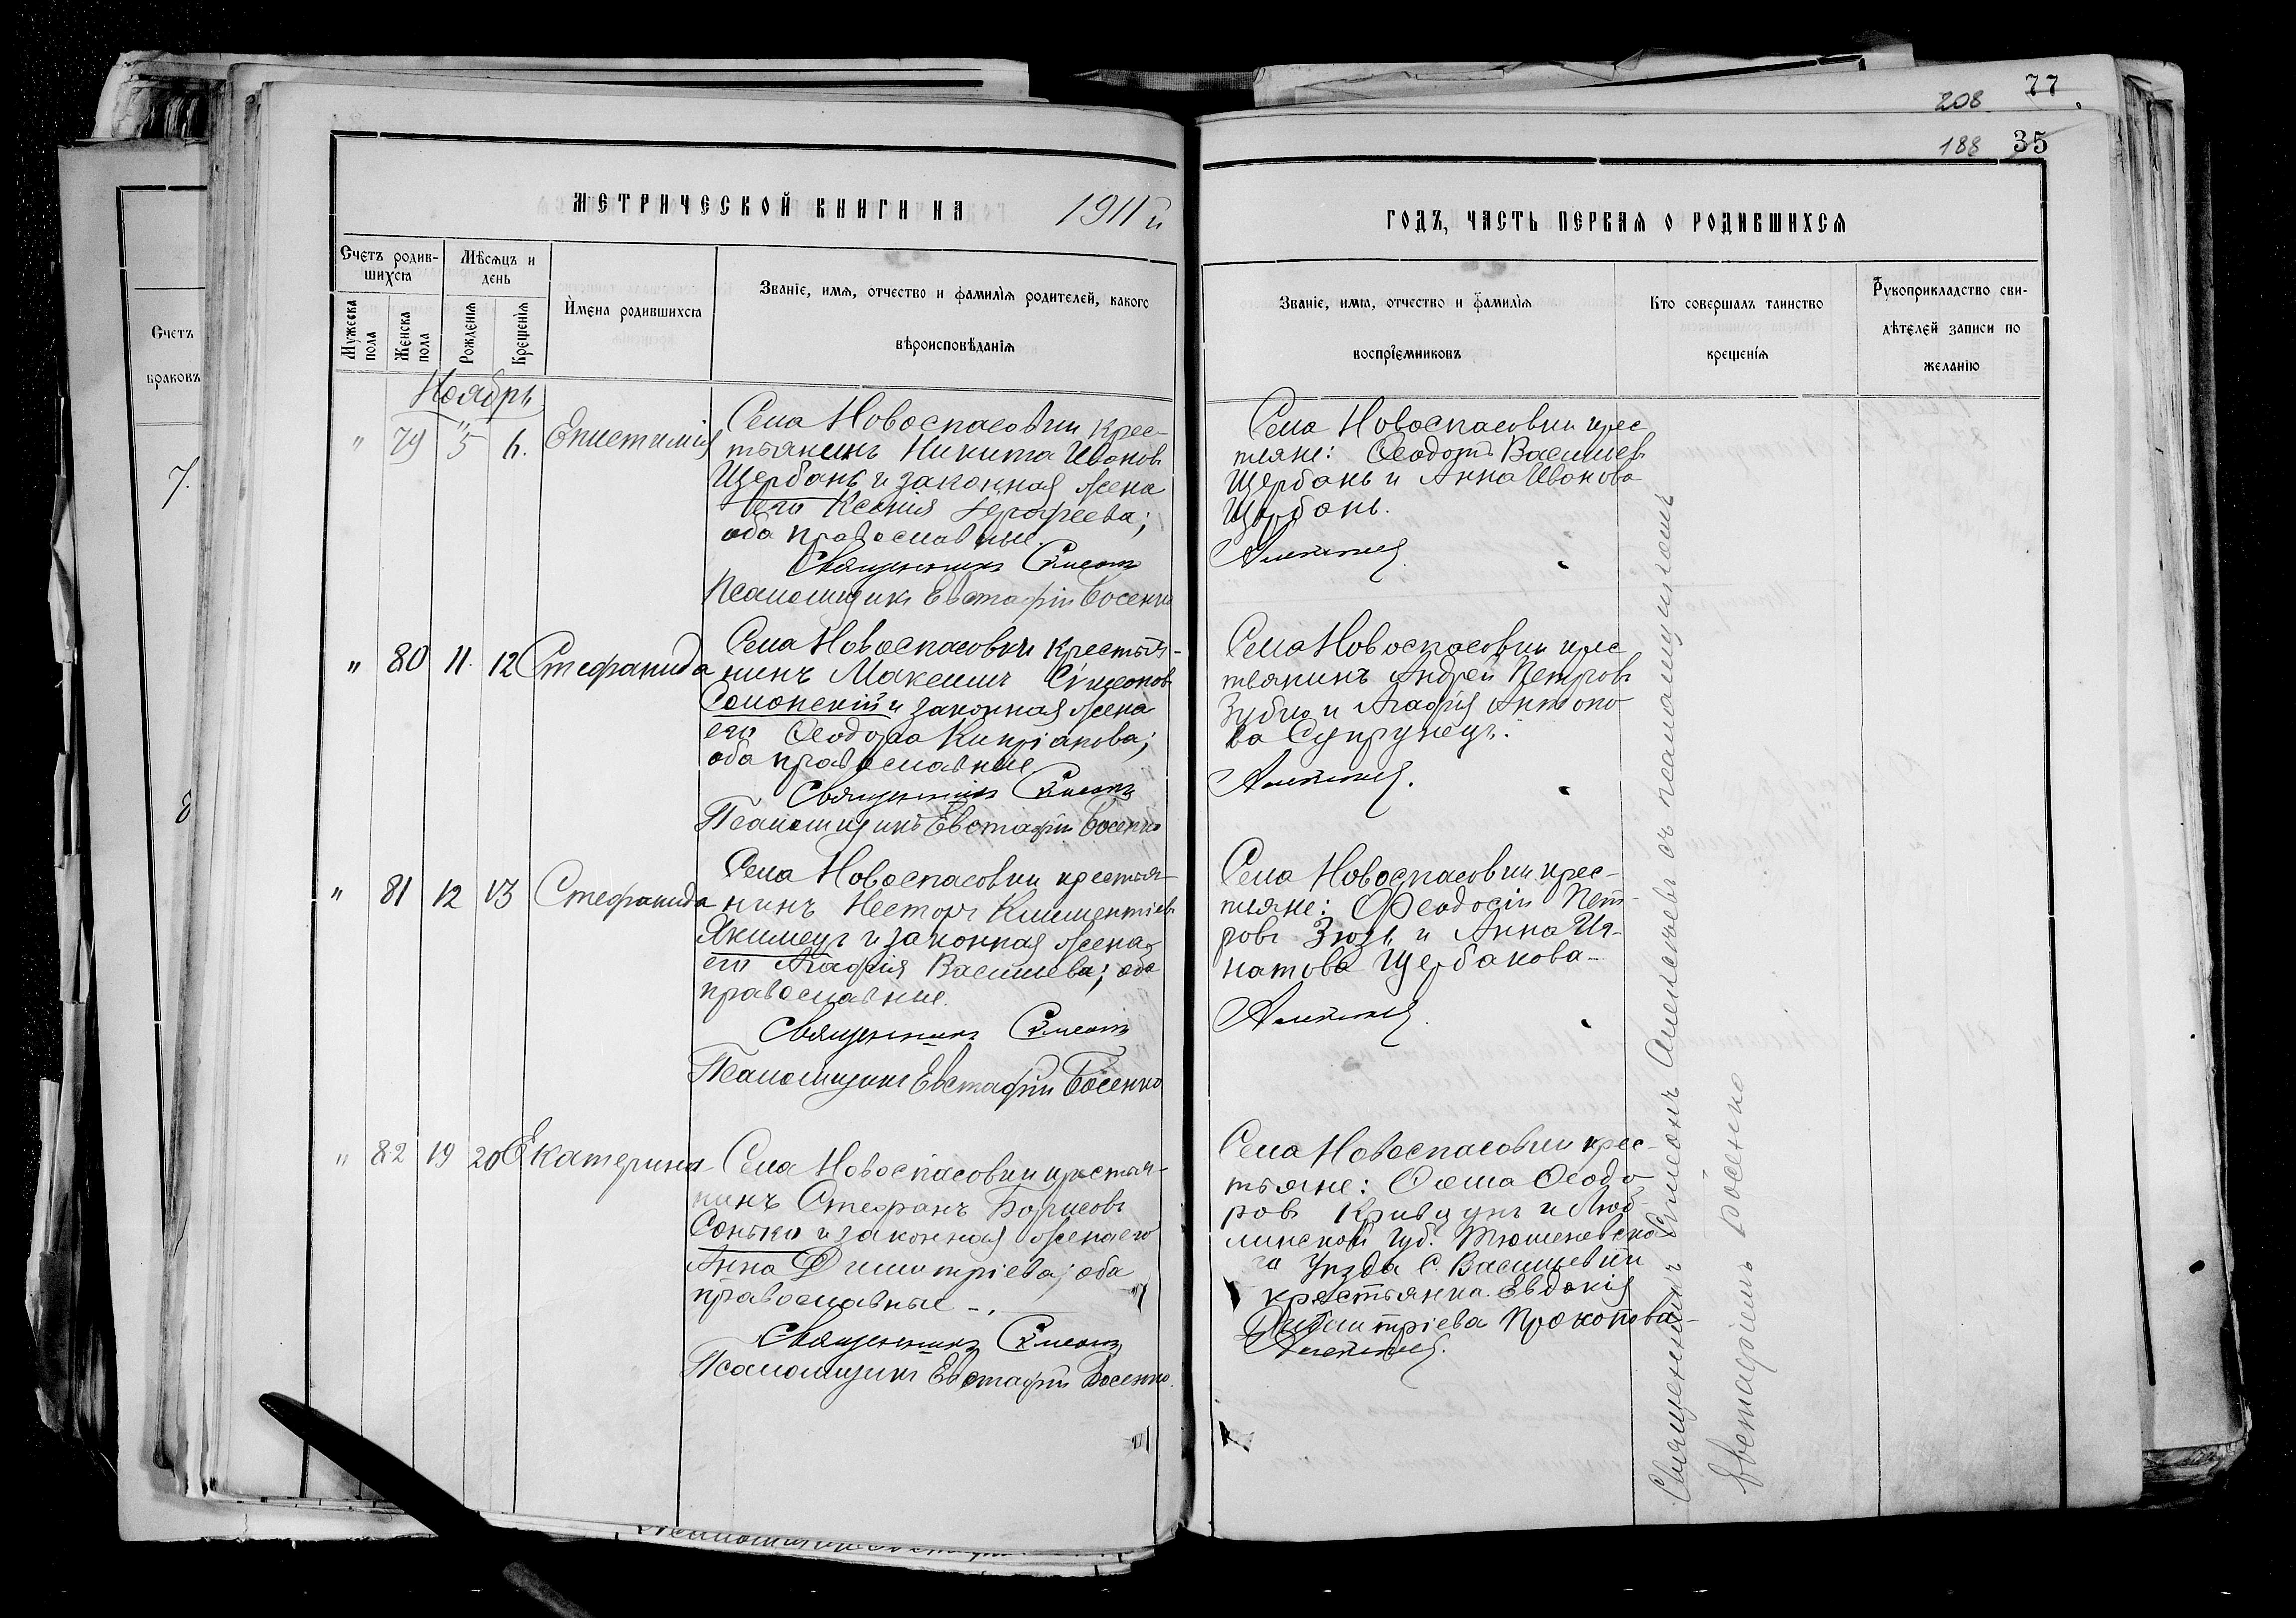 208 77
188 35
МЕТРИЧЕСКОЙ КНИГИ НА 1911 й
ГОДЪ, ЧАСТЬ ПЕРВАЯ О РОДИВШИХСЯ
Счетъ родив-
шихся
Мужеска пола
Женска пола
Мѣсяцъ и
день
Рожденія
Крещенія
Имена родившихся
Званіе, имя, отчество и фамилія родителей, какого
вѣроисповѣданія
Званіе, имя, отчество и фамилія
воспріемниковъ
Кто совершалъ таинство
крещенія
Рукоприкладство сви-
дѣтелей записи по
желанію
Счетъ
браковъ
7.
8
Ноябрь
" 79 5 6. Епистимія
Села Новоспасовки крес-
тьянинъ Никита Ивановъ
Щербань и законная жена
его Ксенія Герофеева;
оба православные.
Священникъ Симеонъ
Псаломщикъ Евстафій Босенко
Села Новоспасовки крес
тяне: Ѳеодотъ Васильевъ
Щербань и Анна Иванова
Щербань.
" 80 11. 12 Стефанида
Села Новоспасовки крестья-
нинъ Максимъ Симеоновъ
Солонскій и законная жена
его Ѳеодора Кипріанова;
оба православные
Священникъ Симеонъ
Псаломщикъ Евстафій Босенко
Села Новоспасовки крес
тьянинъ Андрей Петровъ
Зубко и Агафія Антоно
ва Супрунецъ.
" 81 12 13 Стефанида
Села Новоспасовки крестья-
нинъ Несторъ Климентіевъ
Якимецъ и законная жена
его Агафія Васильева; оба
православные.
Священникъ Симеонъ
Псаломщикъ Евстафій Босенко
Села Новоспасовки крес-
тяне: Ѳеодосій Пет-
ровъ Зюзь и Анна Иг-
натова Щербакова-
" 82 19 20 Екатерина
Села Новоспасовки крестья-
нинъ Стефанъ Борисовъ
Сонько и законная жена его
Анна Димитріева; оба
православные -.
Священникъ Симеонъ
Псаломщикъ Евстафій Босенко.
Села Новоспасовки крес-
тьяне: Ѳома Ѳеодо
ровъ Кривцунъ и Люб
линской губ.
го Уѣзда С.
крестьянка Евдокія
Димитріева Прокопова-
Священникъ Симеонъ съ псаломщикомъ
Евстафіемъ Босенко